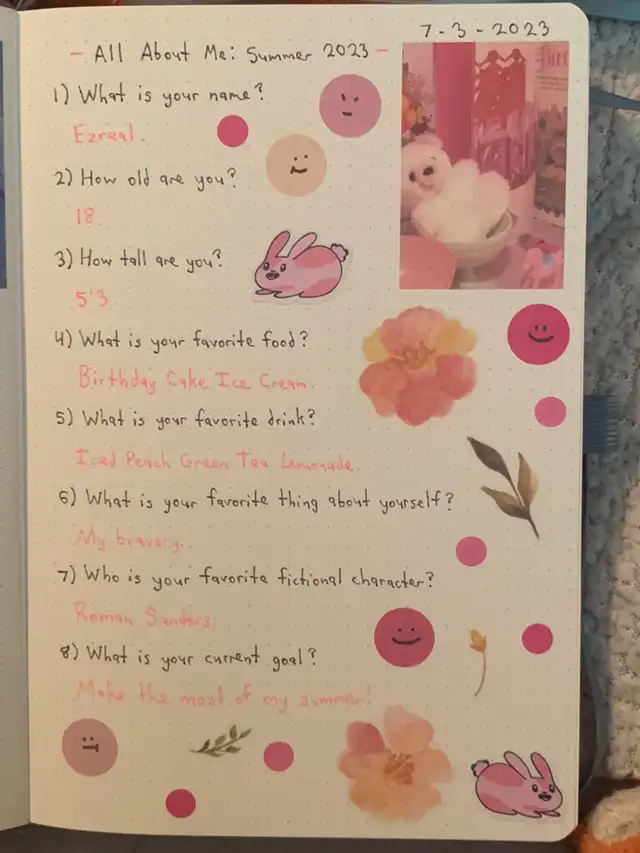 7-3-2023
- All About Me: Summer 2023 -
1) What is your name?
Ezreal.
2) How old are you?
18.
3) How tall are you?
5'3.
4) What is your favorite food?
Birthday Cake Ice Cream.
5) What is your favorite drink?
Iced Peach Green Tea Lemonade.
6) What is your favorite thing about yourself?
My bravery.
7) Who is your favorite fictional character?
Roman Sanders.
8) What is your current goal?
Make the most of my summer!